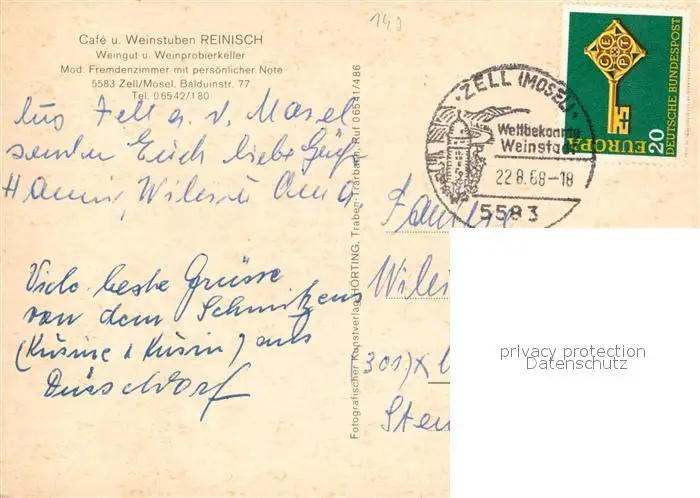 149
Café u. Weinstuben REINISCH
Weingut u. Weinprobierkeller
Mod. Fremdenzimmer mit persönlicher Note
5583 Zell/Mosel, Balduinstr. 77
Tel. 06542/180
Aus Zell a. d. Mosel
senden Euch liebe Grüße
Hanni, Willi u. Oma.
Viele beste Grüsse
von dem Schmitzens
(Kusine & Kusin) aus
Düsseldorf
Fotografischer Kunstverlag HÖRTING, Traben-Trarbach, Ruf 06541/486
ZELL (MOSEL)
Weltbekannte
Weinstadt
22.8.68-18
5583
CEPT
EUROPA
20
DEUTSCHE BUNDESPOST
Familie
(301)
privacy protection
Datenschutz